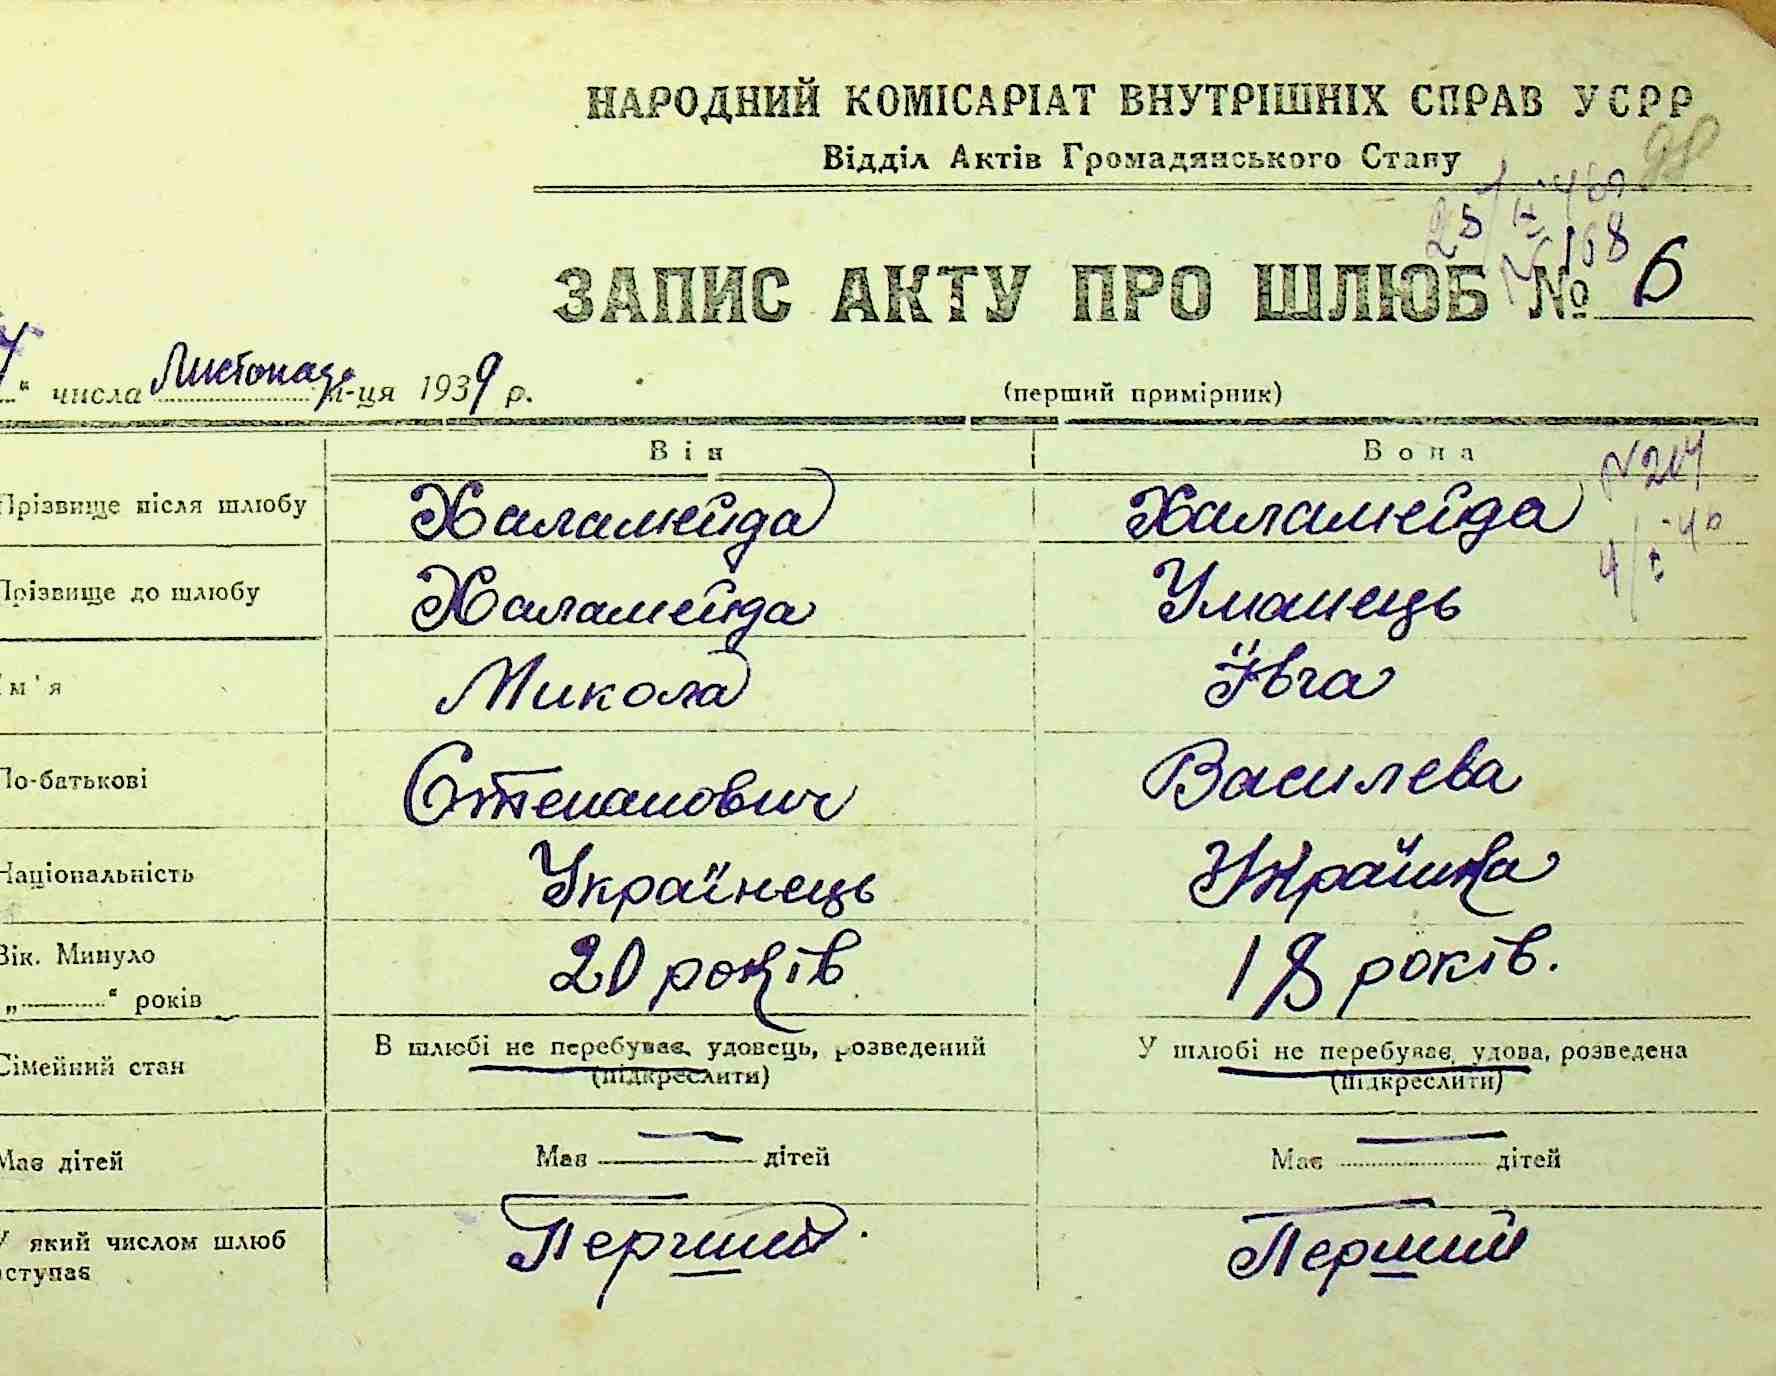 НАРОДНИЙ КОМІСАРІАТ ВНУТРІШНІХ СПРАВ УСРР
Відділ Актів Громадянського Стану
98
ЗАПИС АКТУ ПРО ШЛЮБ № 6
" числа Листопада м-ця 1939 р.
(перший примірник)
Він Вона
№ 217
Прізвище після шлюбу Халамейда Халамейда
Прізвище до шлюбу Халамейда Уманець
Ім'я Микола Ївга
По-батькові Степанович Василева
Національність Українець Українка
Вік. Минуло
„ " років 20 років 18 років.
Сімейний стан В шлюбі не перебуває, удовець, розведений У шлюбі не перебуває, удова, розведена
(підкреслити) (підкреслити)
Має дітей Має — дітей Має — дітей
У який числом шлюб
вступає Перший Перший